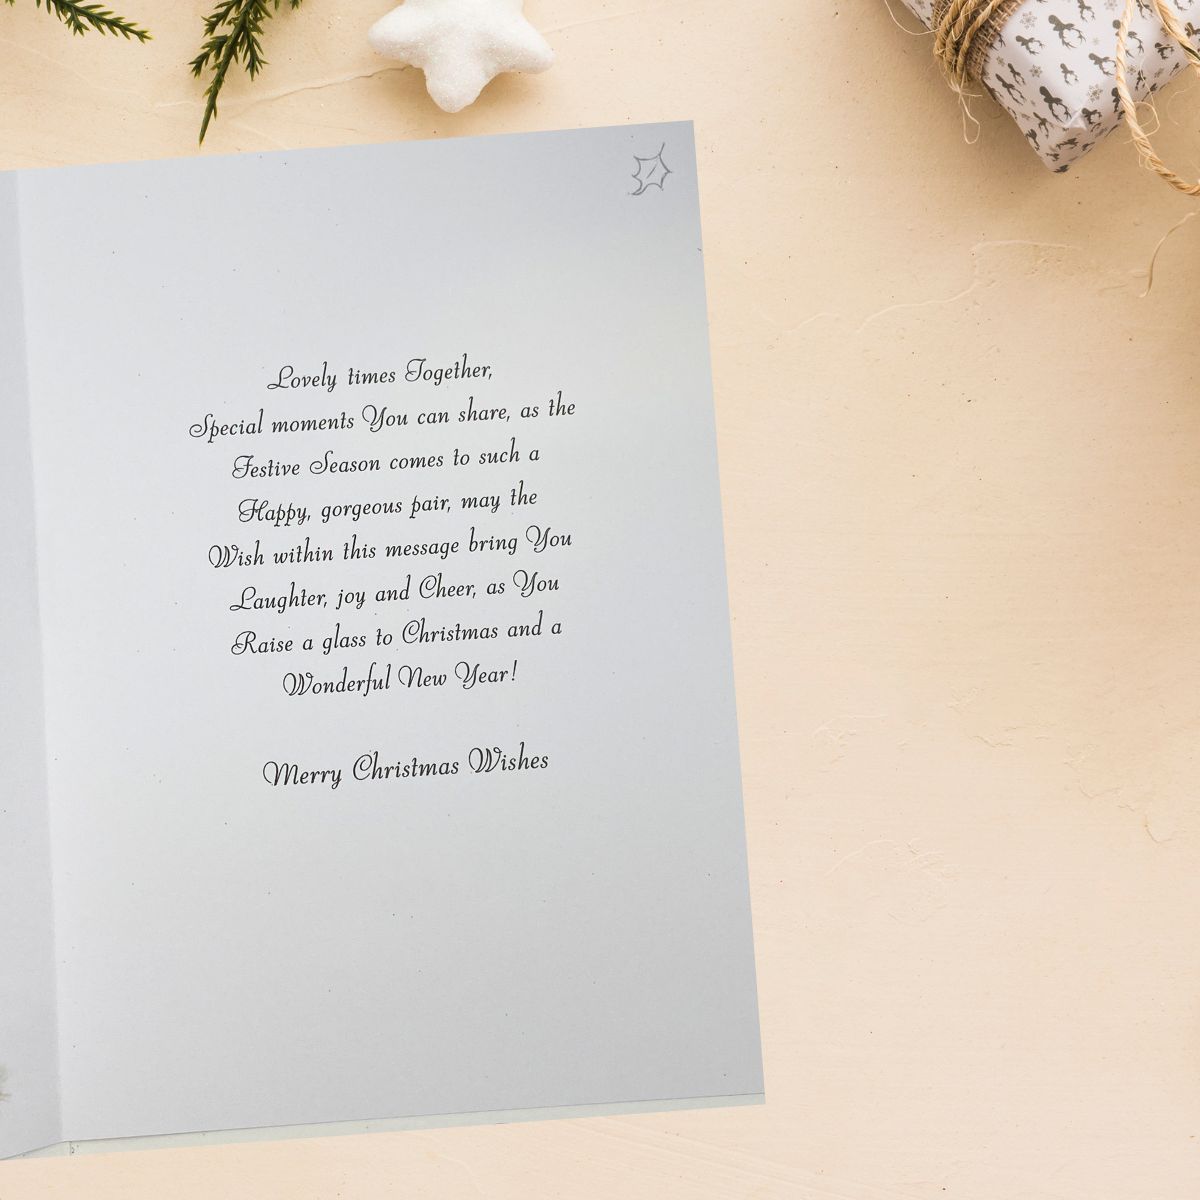 Lovely times Together,
Special moments You can share, as the
Festive Season comes to such a
Happy, gorgeous pair, may the
Wish within this message bring You
Laughter, joy and Cheer, as You
Raise a glass to Christmas and a
Wonderful New Year!
Merry Christmas Wishes